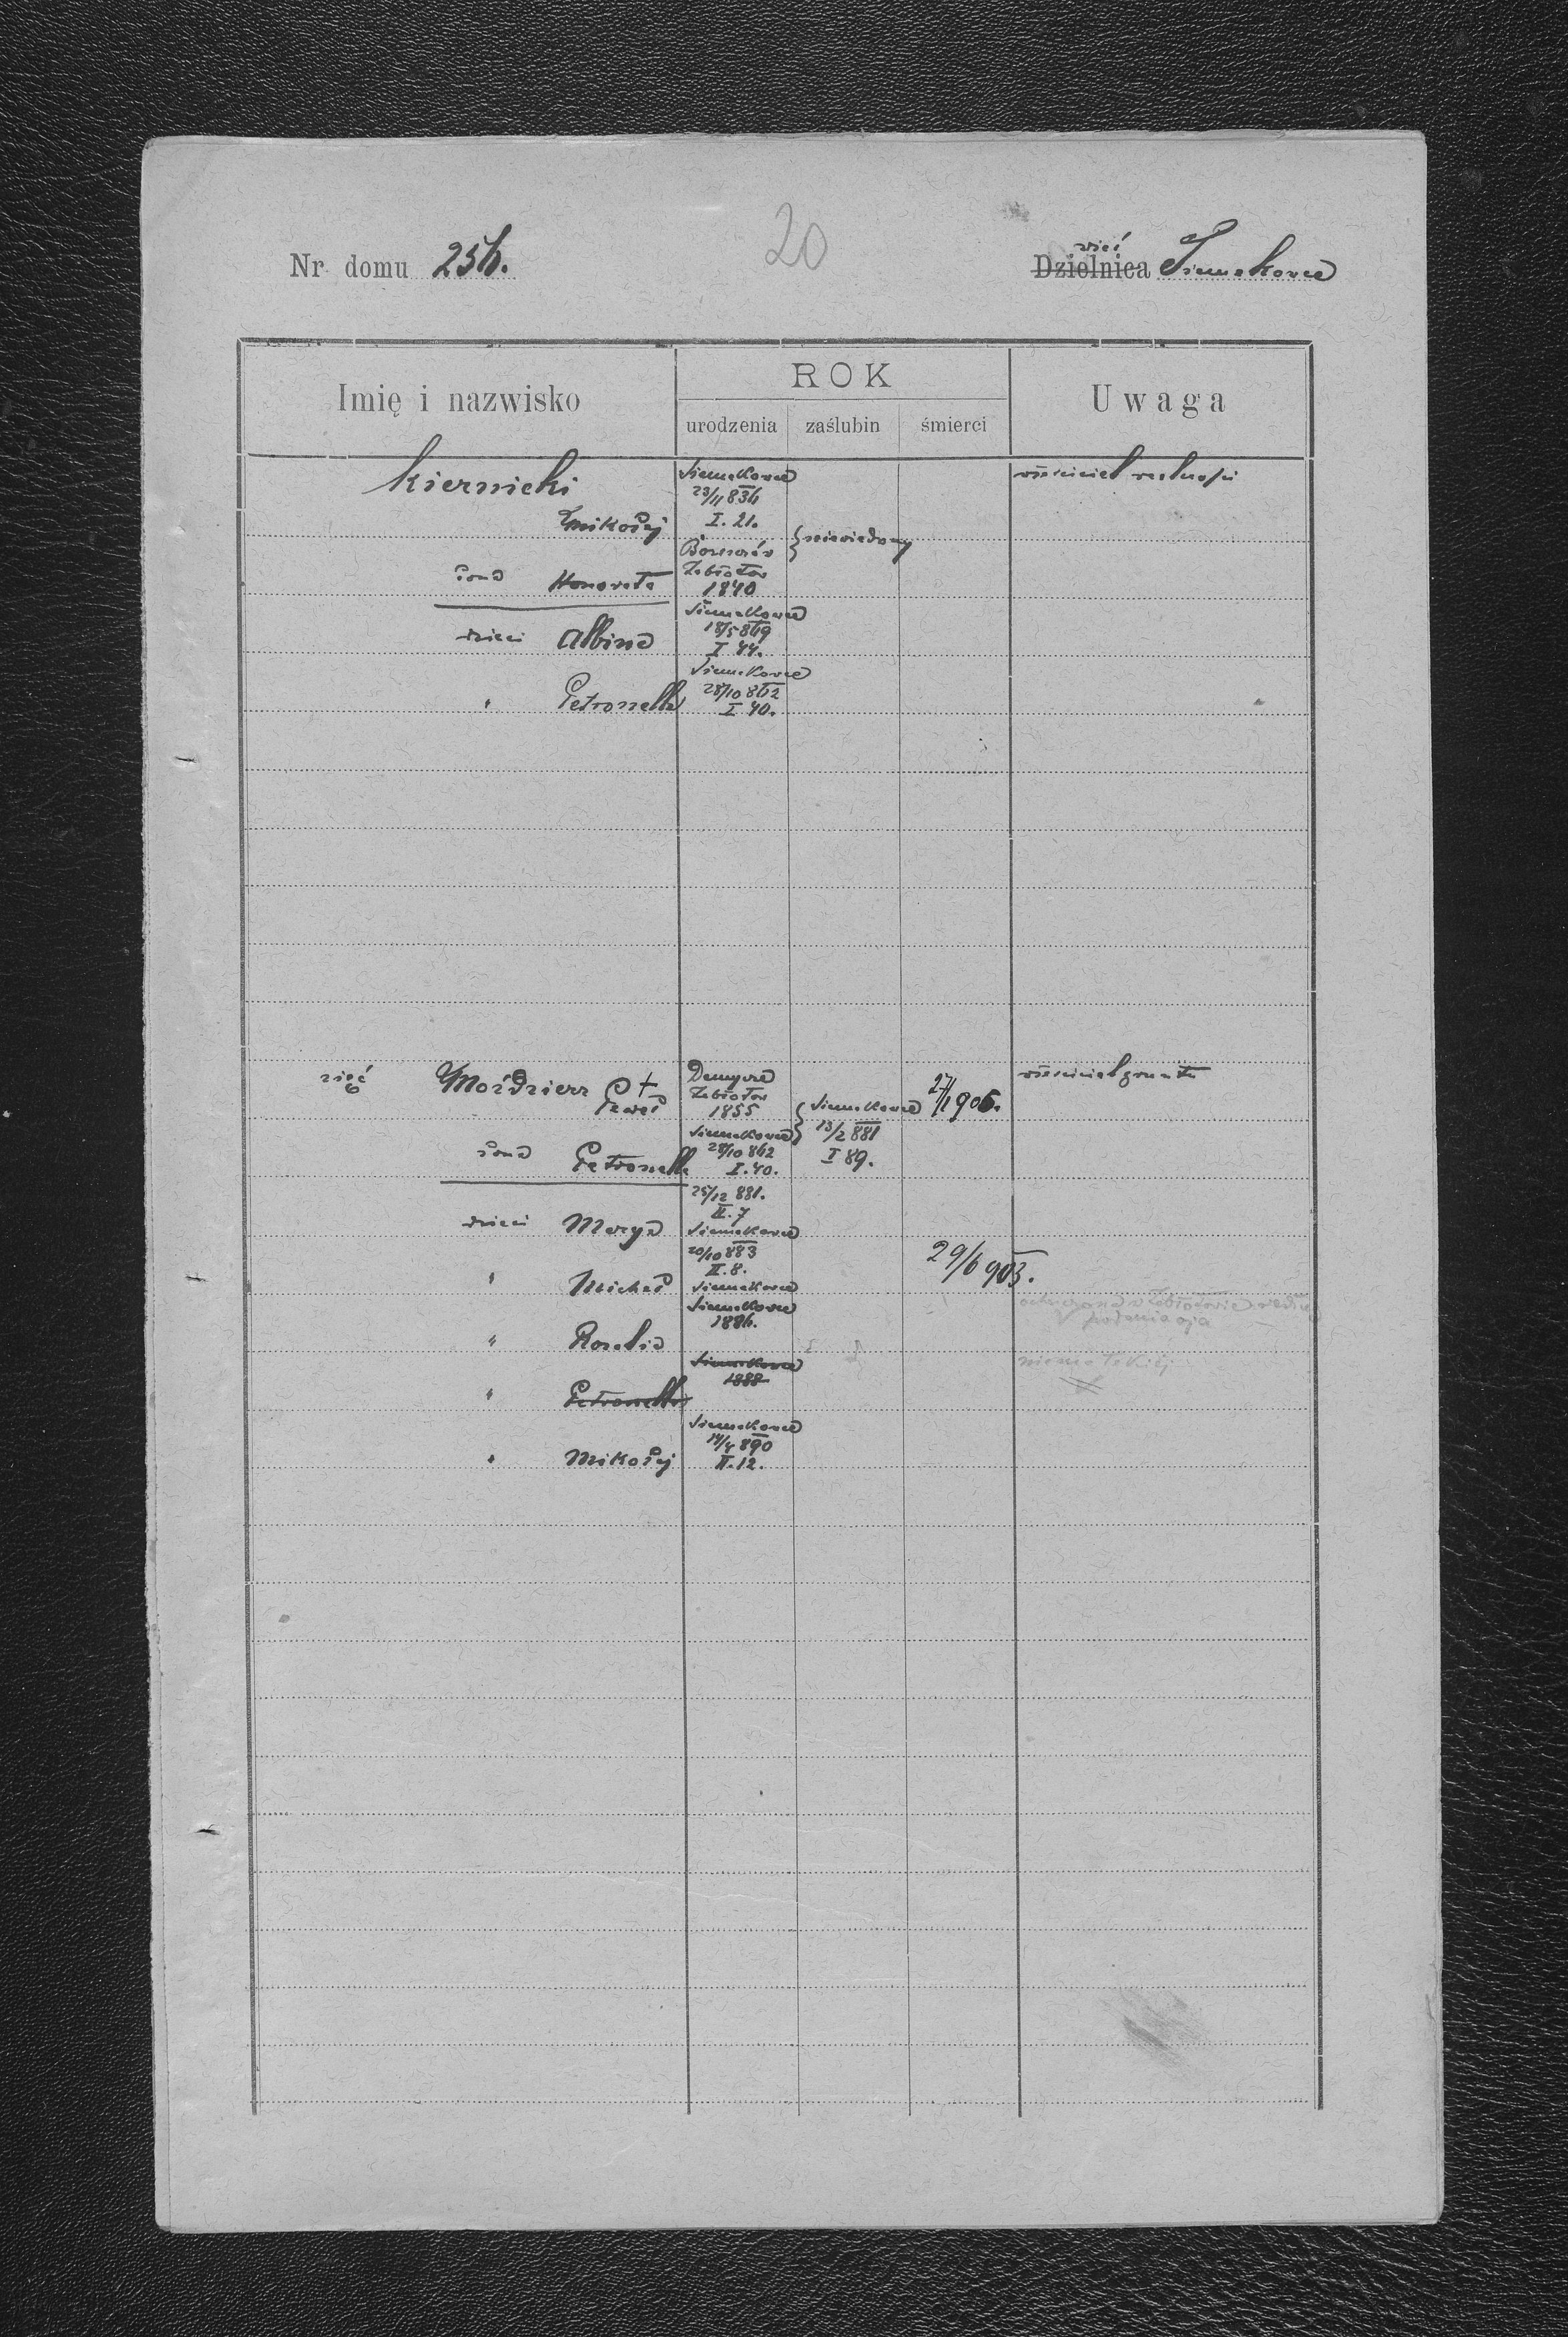 20
Nr domu 256.
wieś
Dzielnica Siemakowce
Imię i nazwisko
ROK
urodzenia
zaślubin
śmierci
Uwaga
Kiernicki
Siemakowce
23/11 836
właściciel realności
Mikołaj
I. 21.
niewiadomy
Zabłotów
żona Honorata
1840
Siemakowce
dzieci Albina
I 44.
Siemakowce
" Petronella
28/10 862
I 40.
zięć Moździerz
Paweł +
Demycze
Zabłotów
1855
Siemakowce
13/2 881
I 89.
27/1 906.
właściciel gruntu
żona Petronella
Siemakowce
28/10 862
I. 40.
dzieci Marya
25/12 881.
II. 7
Siemakowce
" Michał
20/10 883
II. 8.
Siemakowce
29/6 903.
" Rozalia
Siemakowce
1886.
podania ojca
" Petronella
Siemakowce
1888
niema takiej
" Mikołaj
Siemakowce
14/4 890
II. 12.